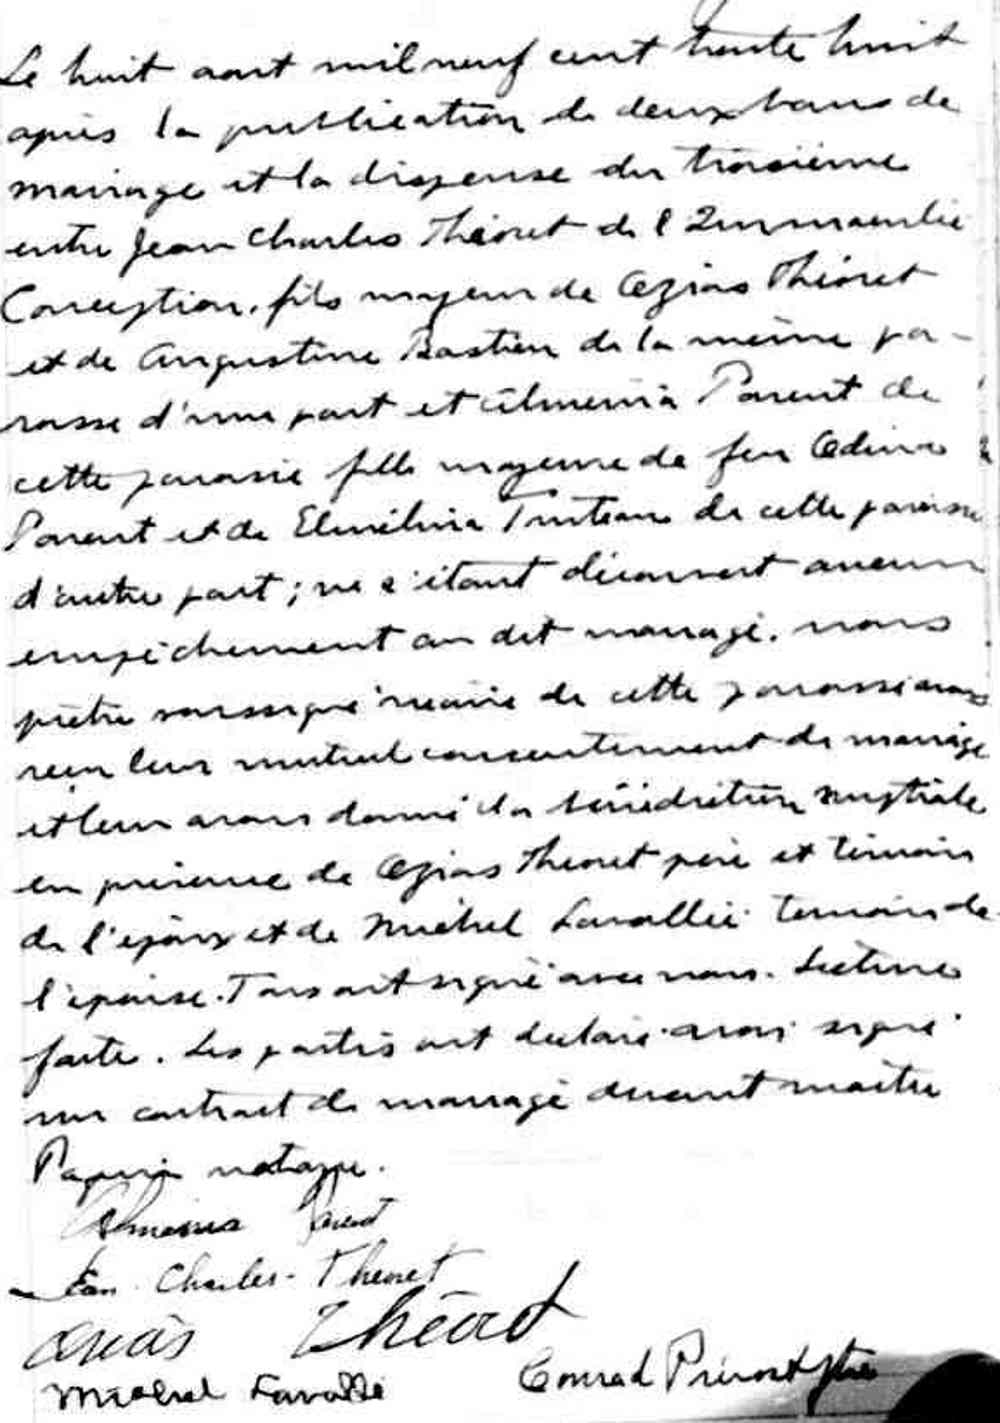 Le huit aout mil neuf cent trente huit
après la publication de deux bans de
mariage et la dispense du troisième
entre Jean Charles Théoret de l'Immaculée
Conception, fils majeur de Ozias Théoret
et de Augustine Bastien de la même pa-
roisse d'une part et Alméria Parent de
cette paroisse fille majeure de feu
Parent et de de cette paroisse
d'autre part; ne s'étant découvert aucun
empêchement au dit mariage. nous
prêtre soussigné vicaire de cette paroisse avons
reçu leur mutuel consentement de mariage
et leur avons donné la bénédiction nuptiale
en présence de Ozias Théoret père et témoin
de l'époux et de Michel Lavallée témoin de
l'épouse. Tous ont signé avec nous. Lecture
faite. Les partis ont déclaré avoir signé
un contrat de mariage devant maître
Papin notaire.
Parent
Jean-Charles-Théoret
Ozias Théoret
Michel Lavallée Conrad Prévost ptre